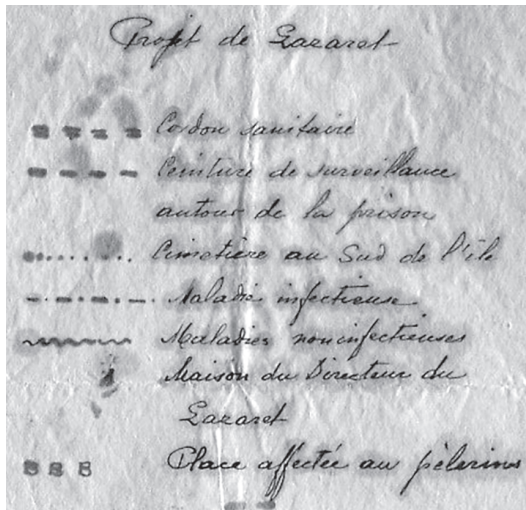 Projet de Lazaret
Cordon sanitaire
Ceinture de surveillance
autour de la prison
Cimetière au Sud de l'île
Maladie infectieuse
Maladies noninfectieuses
Maison du Directeur du
Lazaret
Place affectée au pèlerins